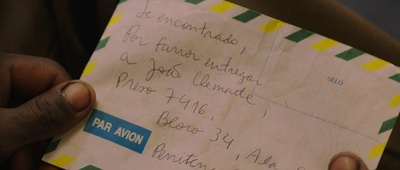 Se encontrado,
Por favor entregar
a João Clemente,
Preso 7416,
Bloco 34, Ala
Peniten
SELO
PAR AVION